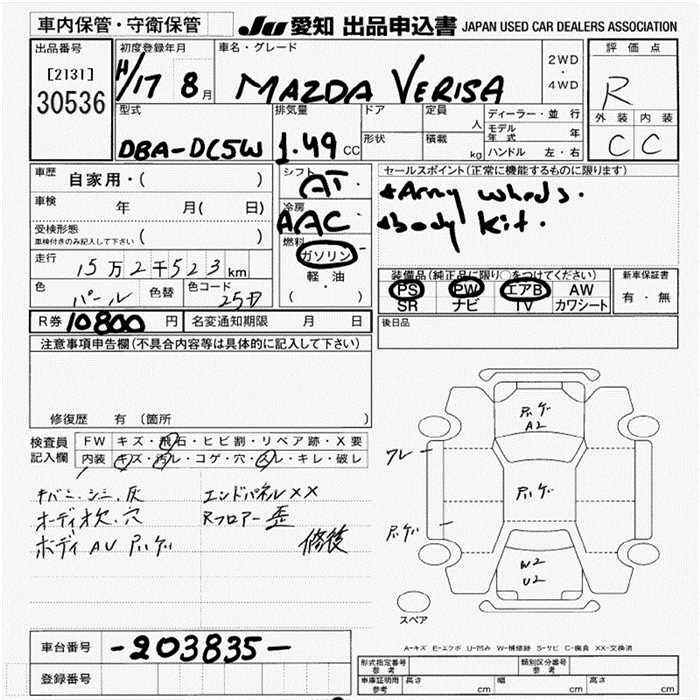 車内保管・守衛保管
JU 愛知 出品申込書 JAPAN USED CAR DEALERS ASSOCIATION
出品番号
[2131]
30536
初度登録年月
H/17 8月
車名・グレード
MAZDA VERISA
2WD
・
4WD
評価点
R
外装 内装
C C
型式
DBA-DC5W
排気量
1.49 CC
ドア
形状
定員
人
積載
kg
ディーラー・並行
モデル年式 年
ハンドル 左・右
車歴
自家用・( )
車検 年 月( 日)
受検形態
車検付きのみ記入して下さい ( )
走行
15万2千523km
色
パール
色替
色コード
25D
シフト
AT
冷房
AAC
燃料
ガソリン
軽・油
( ・ )
セールスポイント(正常に機能するものに限ります)
*Army wheels.
*body kit.
装備品(純正品に限り○をつけてください)
PS PW エアB AW
SR ナビ TV カワシート
新車保証書
有・無
R券 10800 円
名変通知期限 月 日
後日品
注意事項申告欄(不具合内容等は具体的に記入して下さい)
修復歴 有(箇所 )
検査員記入欄
FW キズ・飛石・ヒビ割・リペア跡・X要
内装 キズ・汚レ・コゲ・穴・スレ・キレ・破レ
キバミ.シミ.灰
オーディオ欠.穴
ボディAU
エンドパネルXX
Rフロアー歪
修復
A2
ワレ
W2
U2
スペア
A-キズ E-エクボ U-凹み W-補修跡 S-サビ C-腐食 XX-交換済
車台番号
-203835-
登録番号
形式指定番号 参考
類別区分番号 参考
車庫証明用 参考
長さ cm
幅 cm
高さ cm